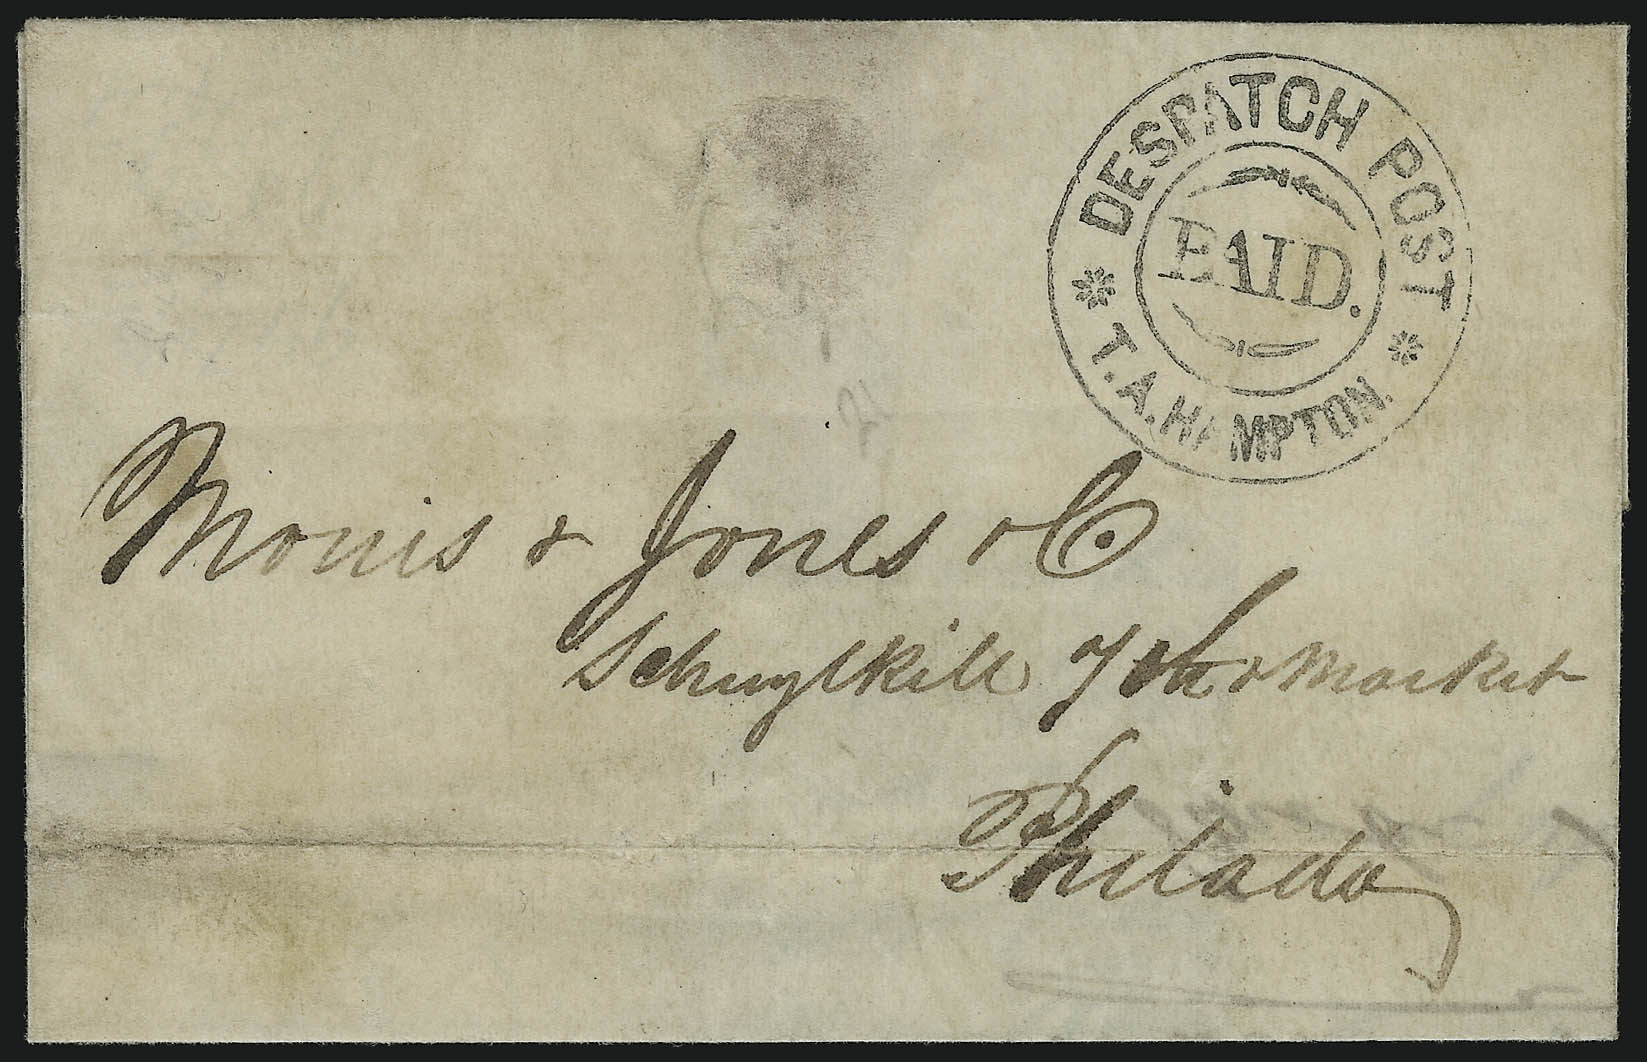 DESPATCH POST
PAID.
T. A. HAMPTON.
Morris & Jones & Co.
Schuylkill 7th & Market
Philada